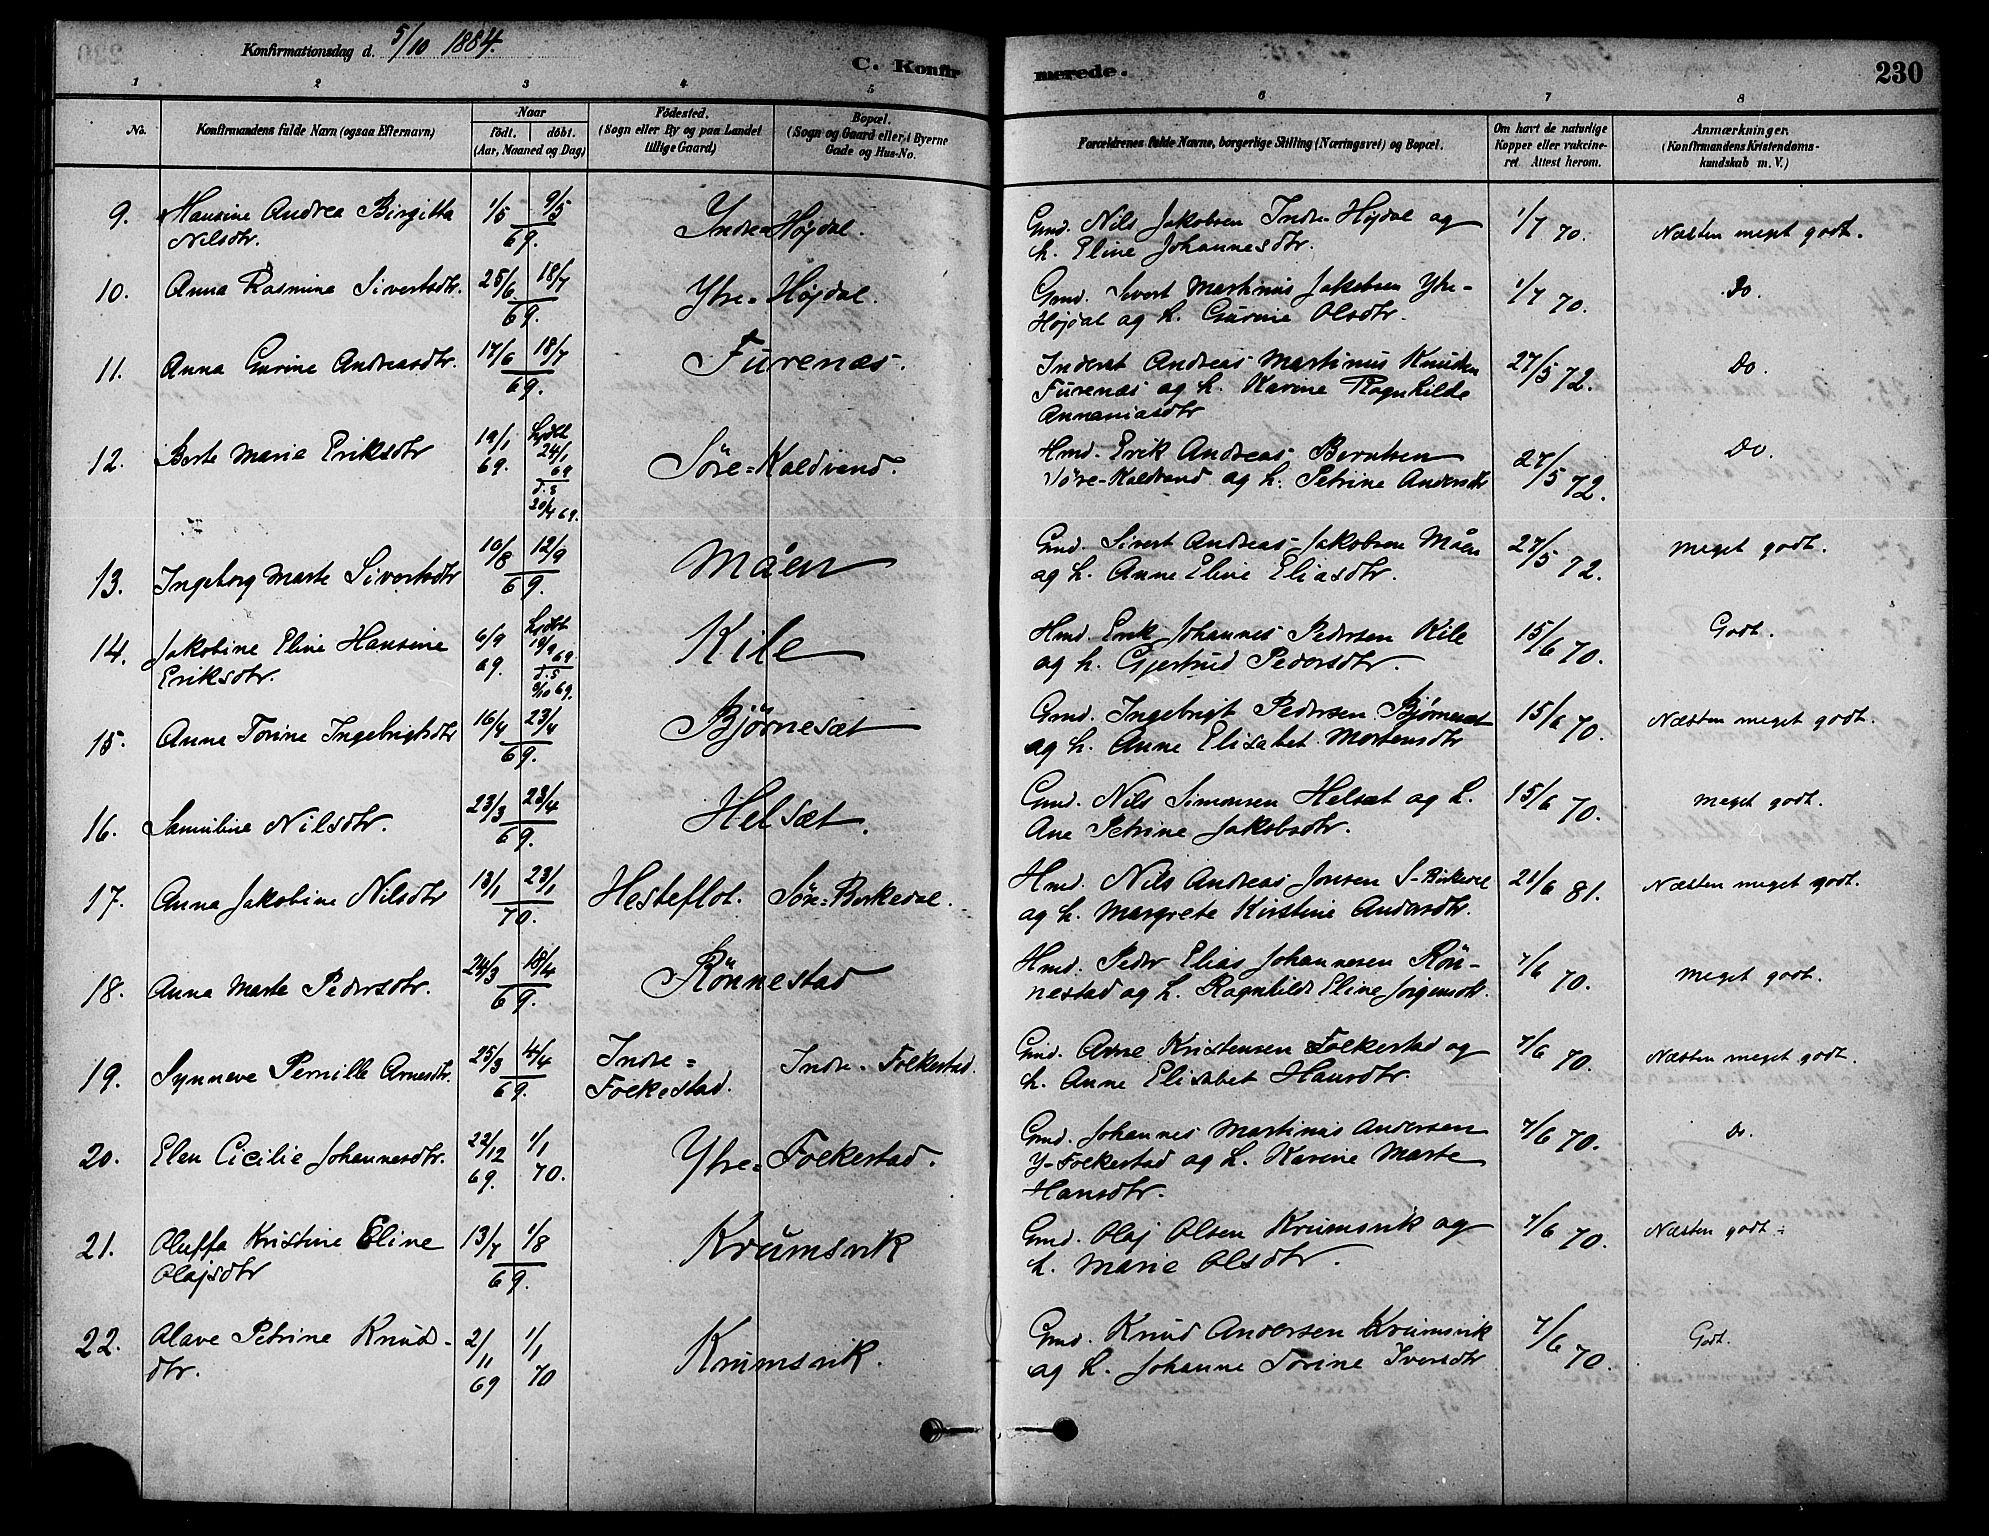 Konfirmationsdag d. 5/10 1884.
C. Konfirmerede.
230
1 2 3 4 5 6 7 8
No. Konfirmandens fulde Navn (ogsaa Efternavn) Naar födt. döbt. (Aar, Maaned og Dag) Födested. (Sogn eller By og paa Landet tillige Gaard) Bopæl. (Sogn og Gaard eller, i Byerne Gade og Hus-No. Forældrenes fulde Navne, borgerlige Stilling (Næringsvei) og Bopæl. Om havt de naturlige Kopper eller vaccineret. Attest herom. Anmærkninger. (Konfirmandens Kristendomskundskab m. V.)
9. Hansine Andrea Birgitta 1/5 9/5 Indre=Højdal. Gmd. Nils Jakobsen Indre Højdal og 1/7 70. Næsten meget godt.
Nilsdtr. 69. h. Eline Johannesdtr.
10. Anna Rasmina Sivertsdtr. 25/6 18/7 Ytre=Højdal. Gmd. Sivert Martinus Jakobsen Ytre- 1/7 70. Do.
69. Højdal ag h. Gurine Olsdtr.
11. Anna Gurine Andreasdtr. 17/6 18/7 Furenæs. Inderst Andreas Martinus Knudsen 27/5 72. Do.
69. Furenæs ag h. Karine Ragnhilde
Annaniasdtr
12. Berte Marie Eriksdtr 19/1 69. hjdbt 24/1 69 d. i 20/4 69. Söre=Kaldvand. Hmd. Erik Andreas Berntsen 27/5 72. Do.
Söre-Kaldvand ag h. Petrine Andersdtr
13. Ingeborg Marte Sivertsdtr 10/8 12/9 69. Måen Gmd. Sivert Andreas Jakobsen Måen 27/5 72. Meget godt.
ag h. Anne Eline Eliasdtr.
14. Jakobine Eline Hansine 6/9 69. hjdbt 19/9 69. d. i 3/10 69. Kile Hmd. Erik Johannes Pedersen Kile 15/6 70. Godt.
Eriksdtr. ag h. Gjertrud Pedersdtr.
15. Anne Torine Ingebrigtsdtr 16/4 23/4 69. Bjørnesæt Gmd. Ingebrigt Pedersen Bjørnesæt 15/6 70. Næsten meget godt.
ag h. Anne Elisabet Mortensdtr
16. Samuline Nilsdtr. 23/3 23/4 69. Helsæt. Gmd. Nils Simonsen Helsæt ag h. 15/6 70. Meget godt.
Ane Petrine Jakobsdtr.
17. Anna Jakobine Nilsdtr 13/1 23/1 70. Hesteflot. Söre=Berkedal. Hmd. Nils Andreas Jonsen S-Birkedal 21/6 81. Næsten meget godt.
ag h. Margrete Kirstine Andersdtr.
18. Anna Marte Pedersdtr. 24/3 18/4 69. Rönnestad Hmd. Peder Elias Johannesen Rön- 7/6 70. Meget godt.
nestad ag h. Ragnhilde Eline Jörgensdtr.
19. Synneve Pernille Arnesdtr. 25/3 4/4 69. Indre= Indre-Folkestad. Gmd. Arne Kristensen Folkestad og 7/6 70. Næsten meget godt.
Folkestad. h. Anne Elisabet Hansdtr.
20. Elen Cicilie Johannesdtr. 22/12 69. 1/1 70. Ytre=Folkestad. Gmd. Johannes Martinus Andersen 7/6 70. Do.
Y-Folkestad ag h. Karine Marte
Hansdtr.
21. Oluffa Kristine Eline 13/7 1/8 69. Krumsvik Gmd. Olaj Olsen Krumsvik og 7/6 70. Næsten godt.
Olajsdtr h. Marie Olsdtr.
22. Olave Petrine Knuds- 2/11 69 1/1 70 Krumsvik. Gmd. Knud Andersen Krumsvik 7/6 70. Godt.
dtr. ag h. Johanne Torine Iversdtr